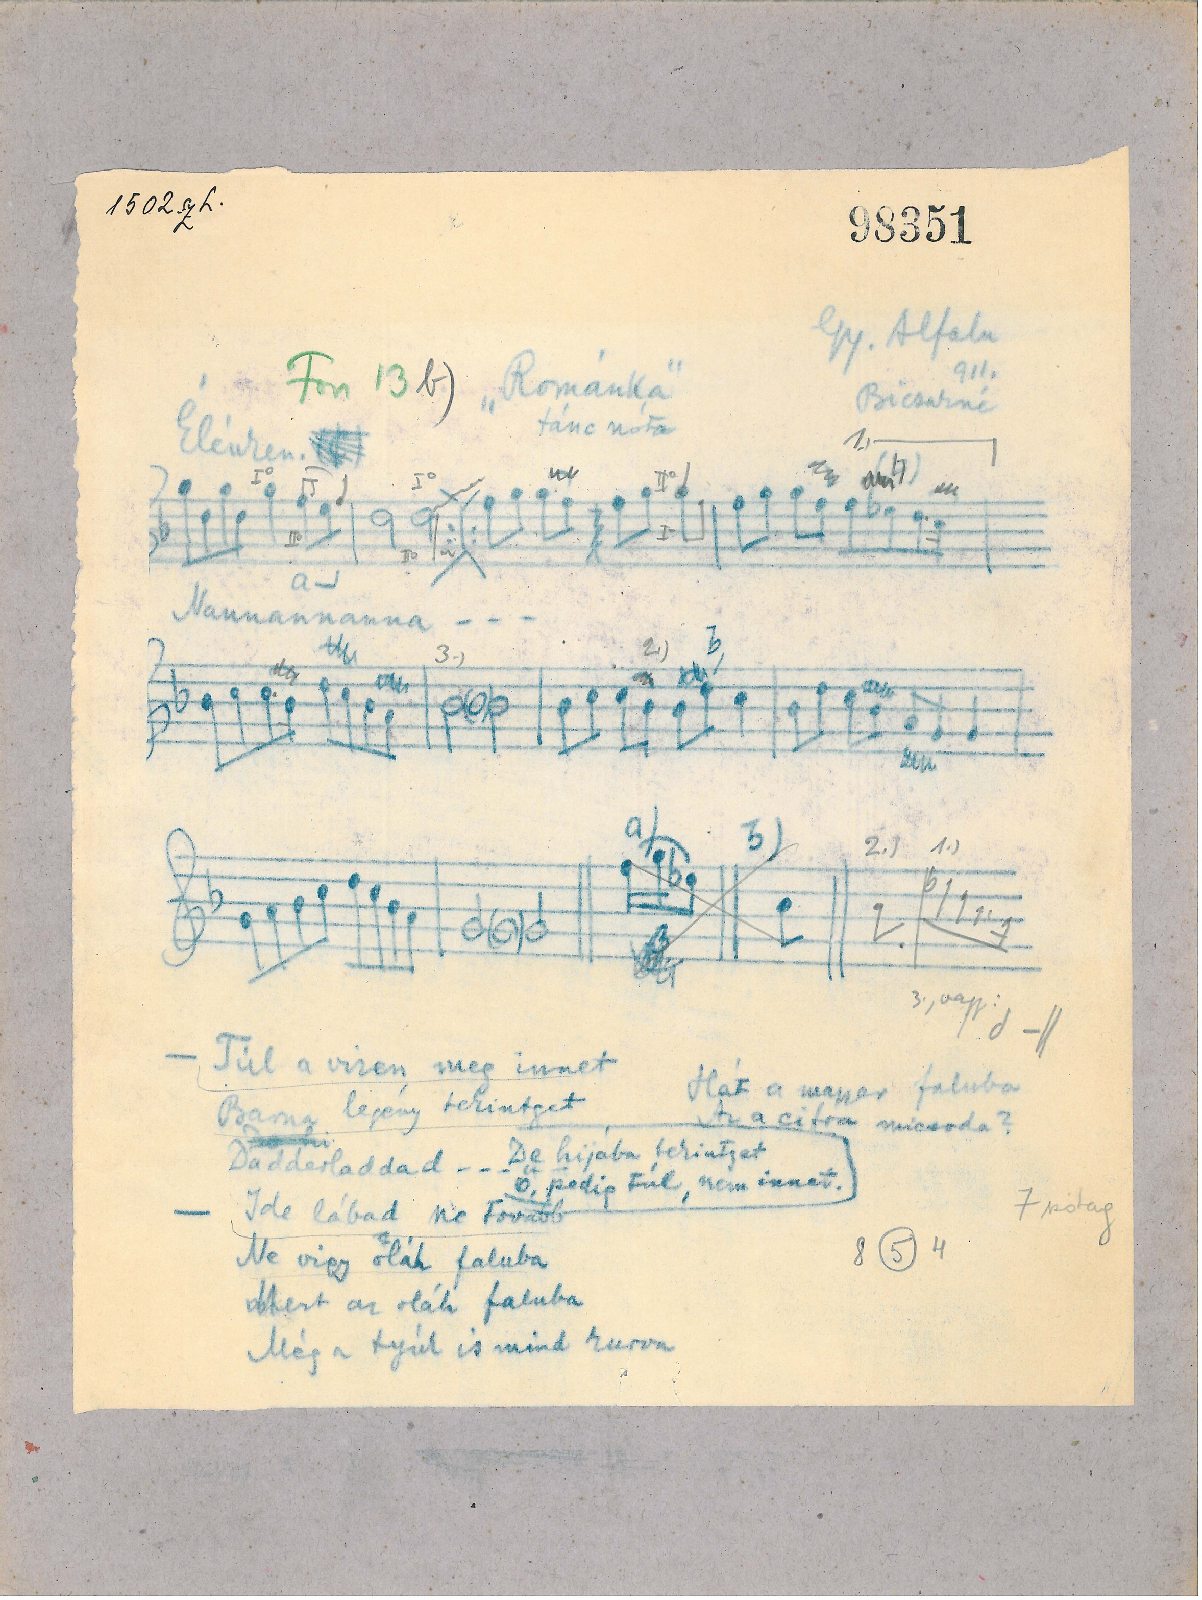 1502 sz. h.
98351
Gy. Alfalu
911.
Fon 13 b) „Románka"
tánc nóta
Élénken.
1.)
I° II I° II°
II° II° I°
a
Nannannanna - - -
3.) 2.) b)
a) b) 2.) 1.)
3., vagy:
— Túl a vizen meg innet
Barna legény tekintget
Hát a magyar faluba
Az a cifra micsoda?
Dadderladdad - - -
De hijába tekintget
Ő pedig túl, nem innet.
— Ide lábad ne tovább
Ne vigy oláh faluba
Mert az oláh faluba
Még a tyúk is mind kurva
7 szótag
8 5 4